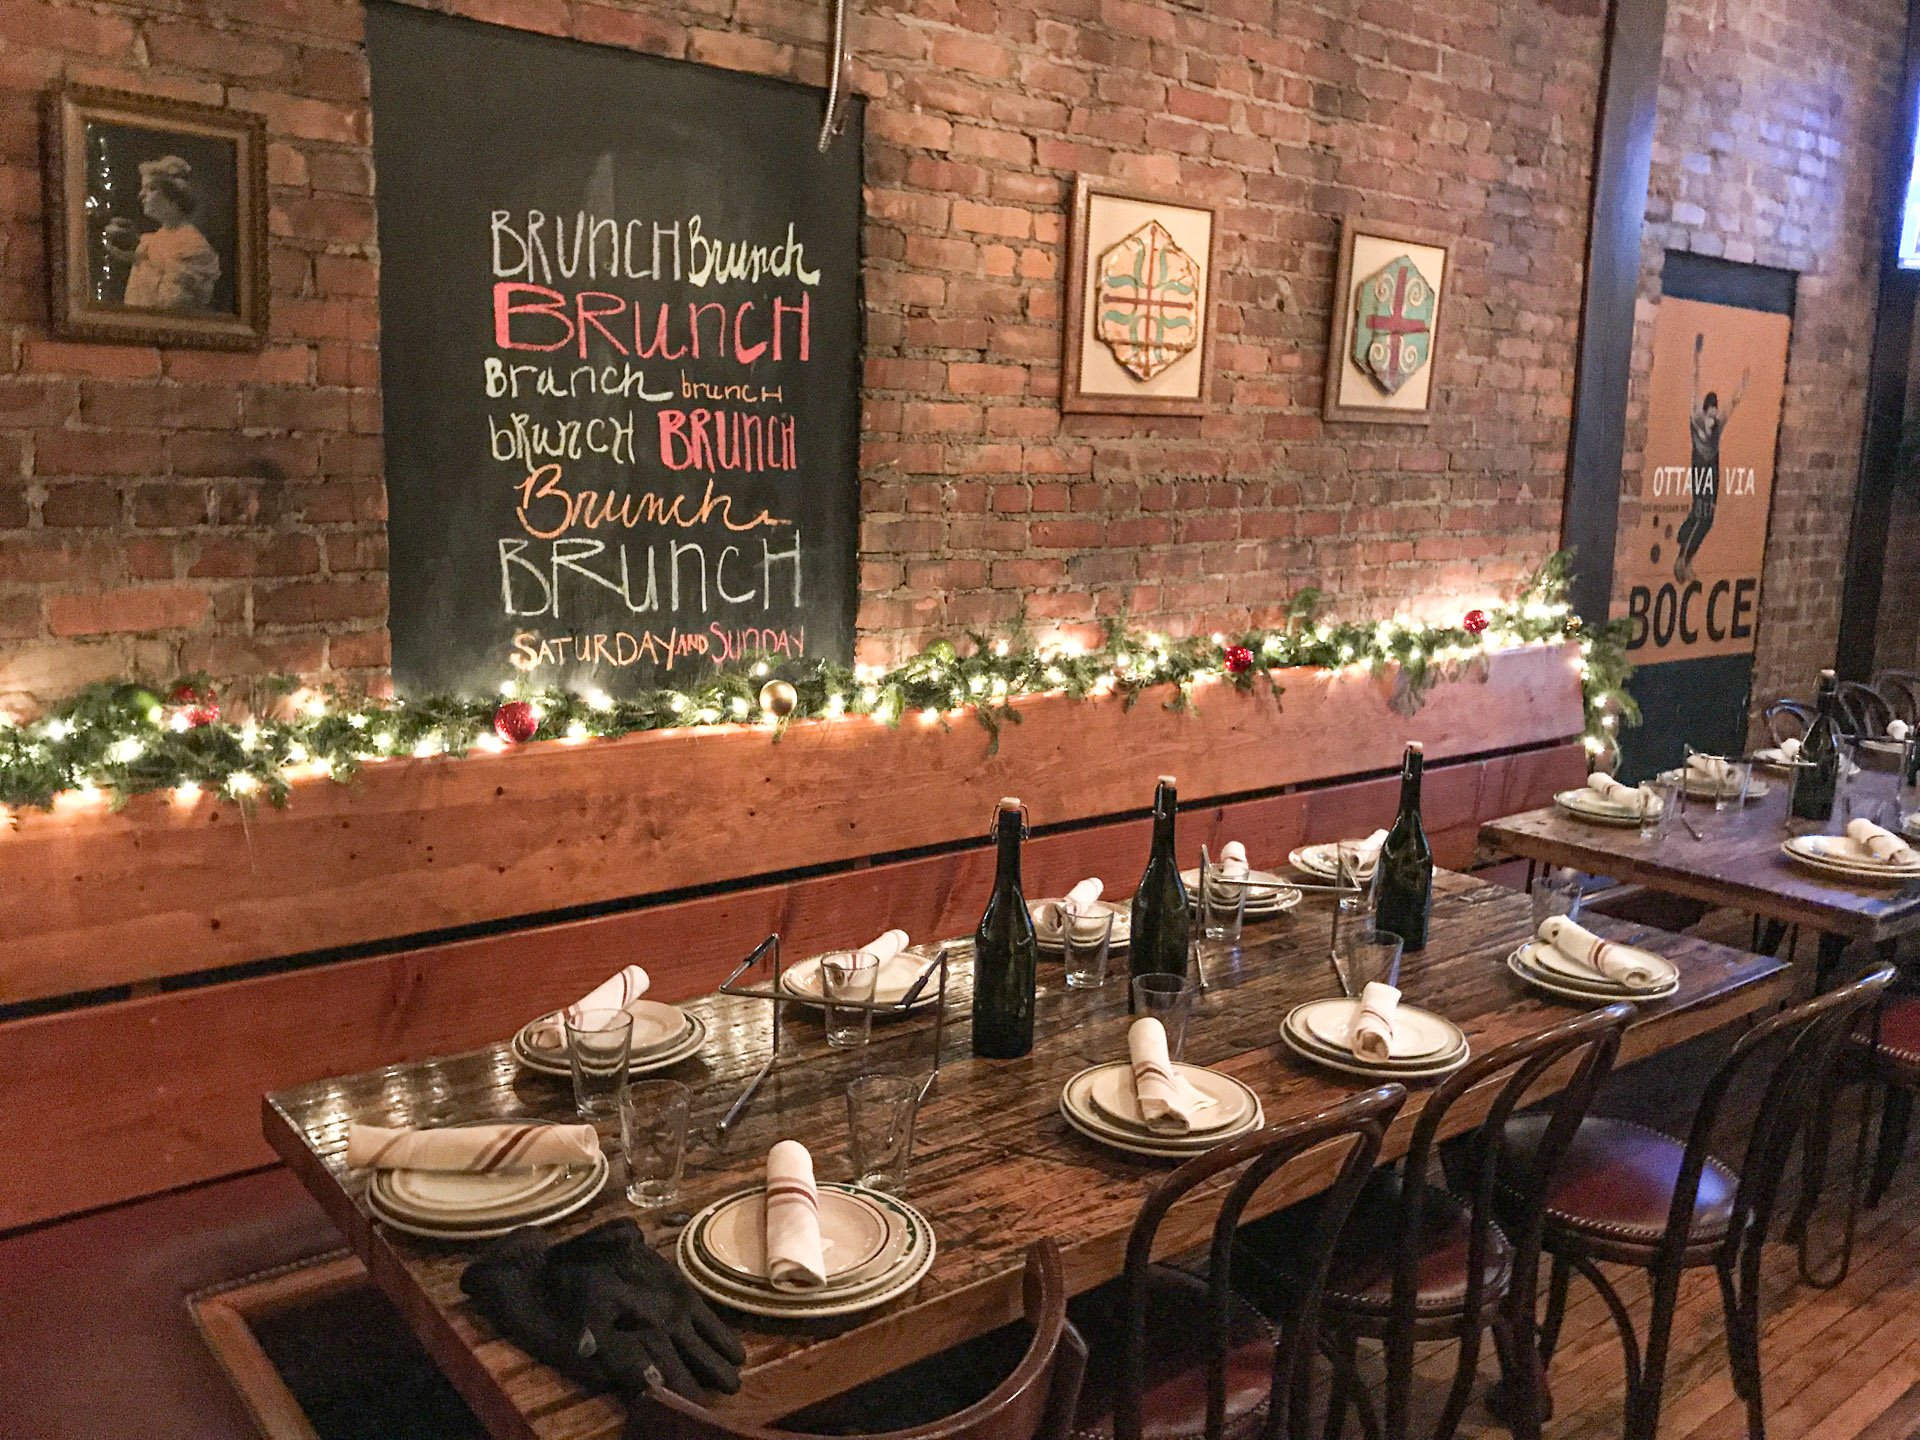 BRUNCH Brunch
BRUNCH
Branch brunch
bRunCH BRUNCH
Brunch
BRUNCH
SATURDAY AND SUNDAY
OTTAVA VIA
BOCCE